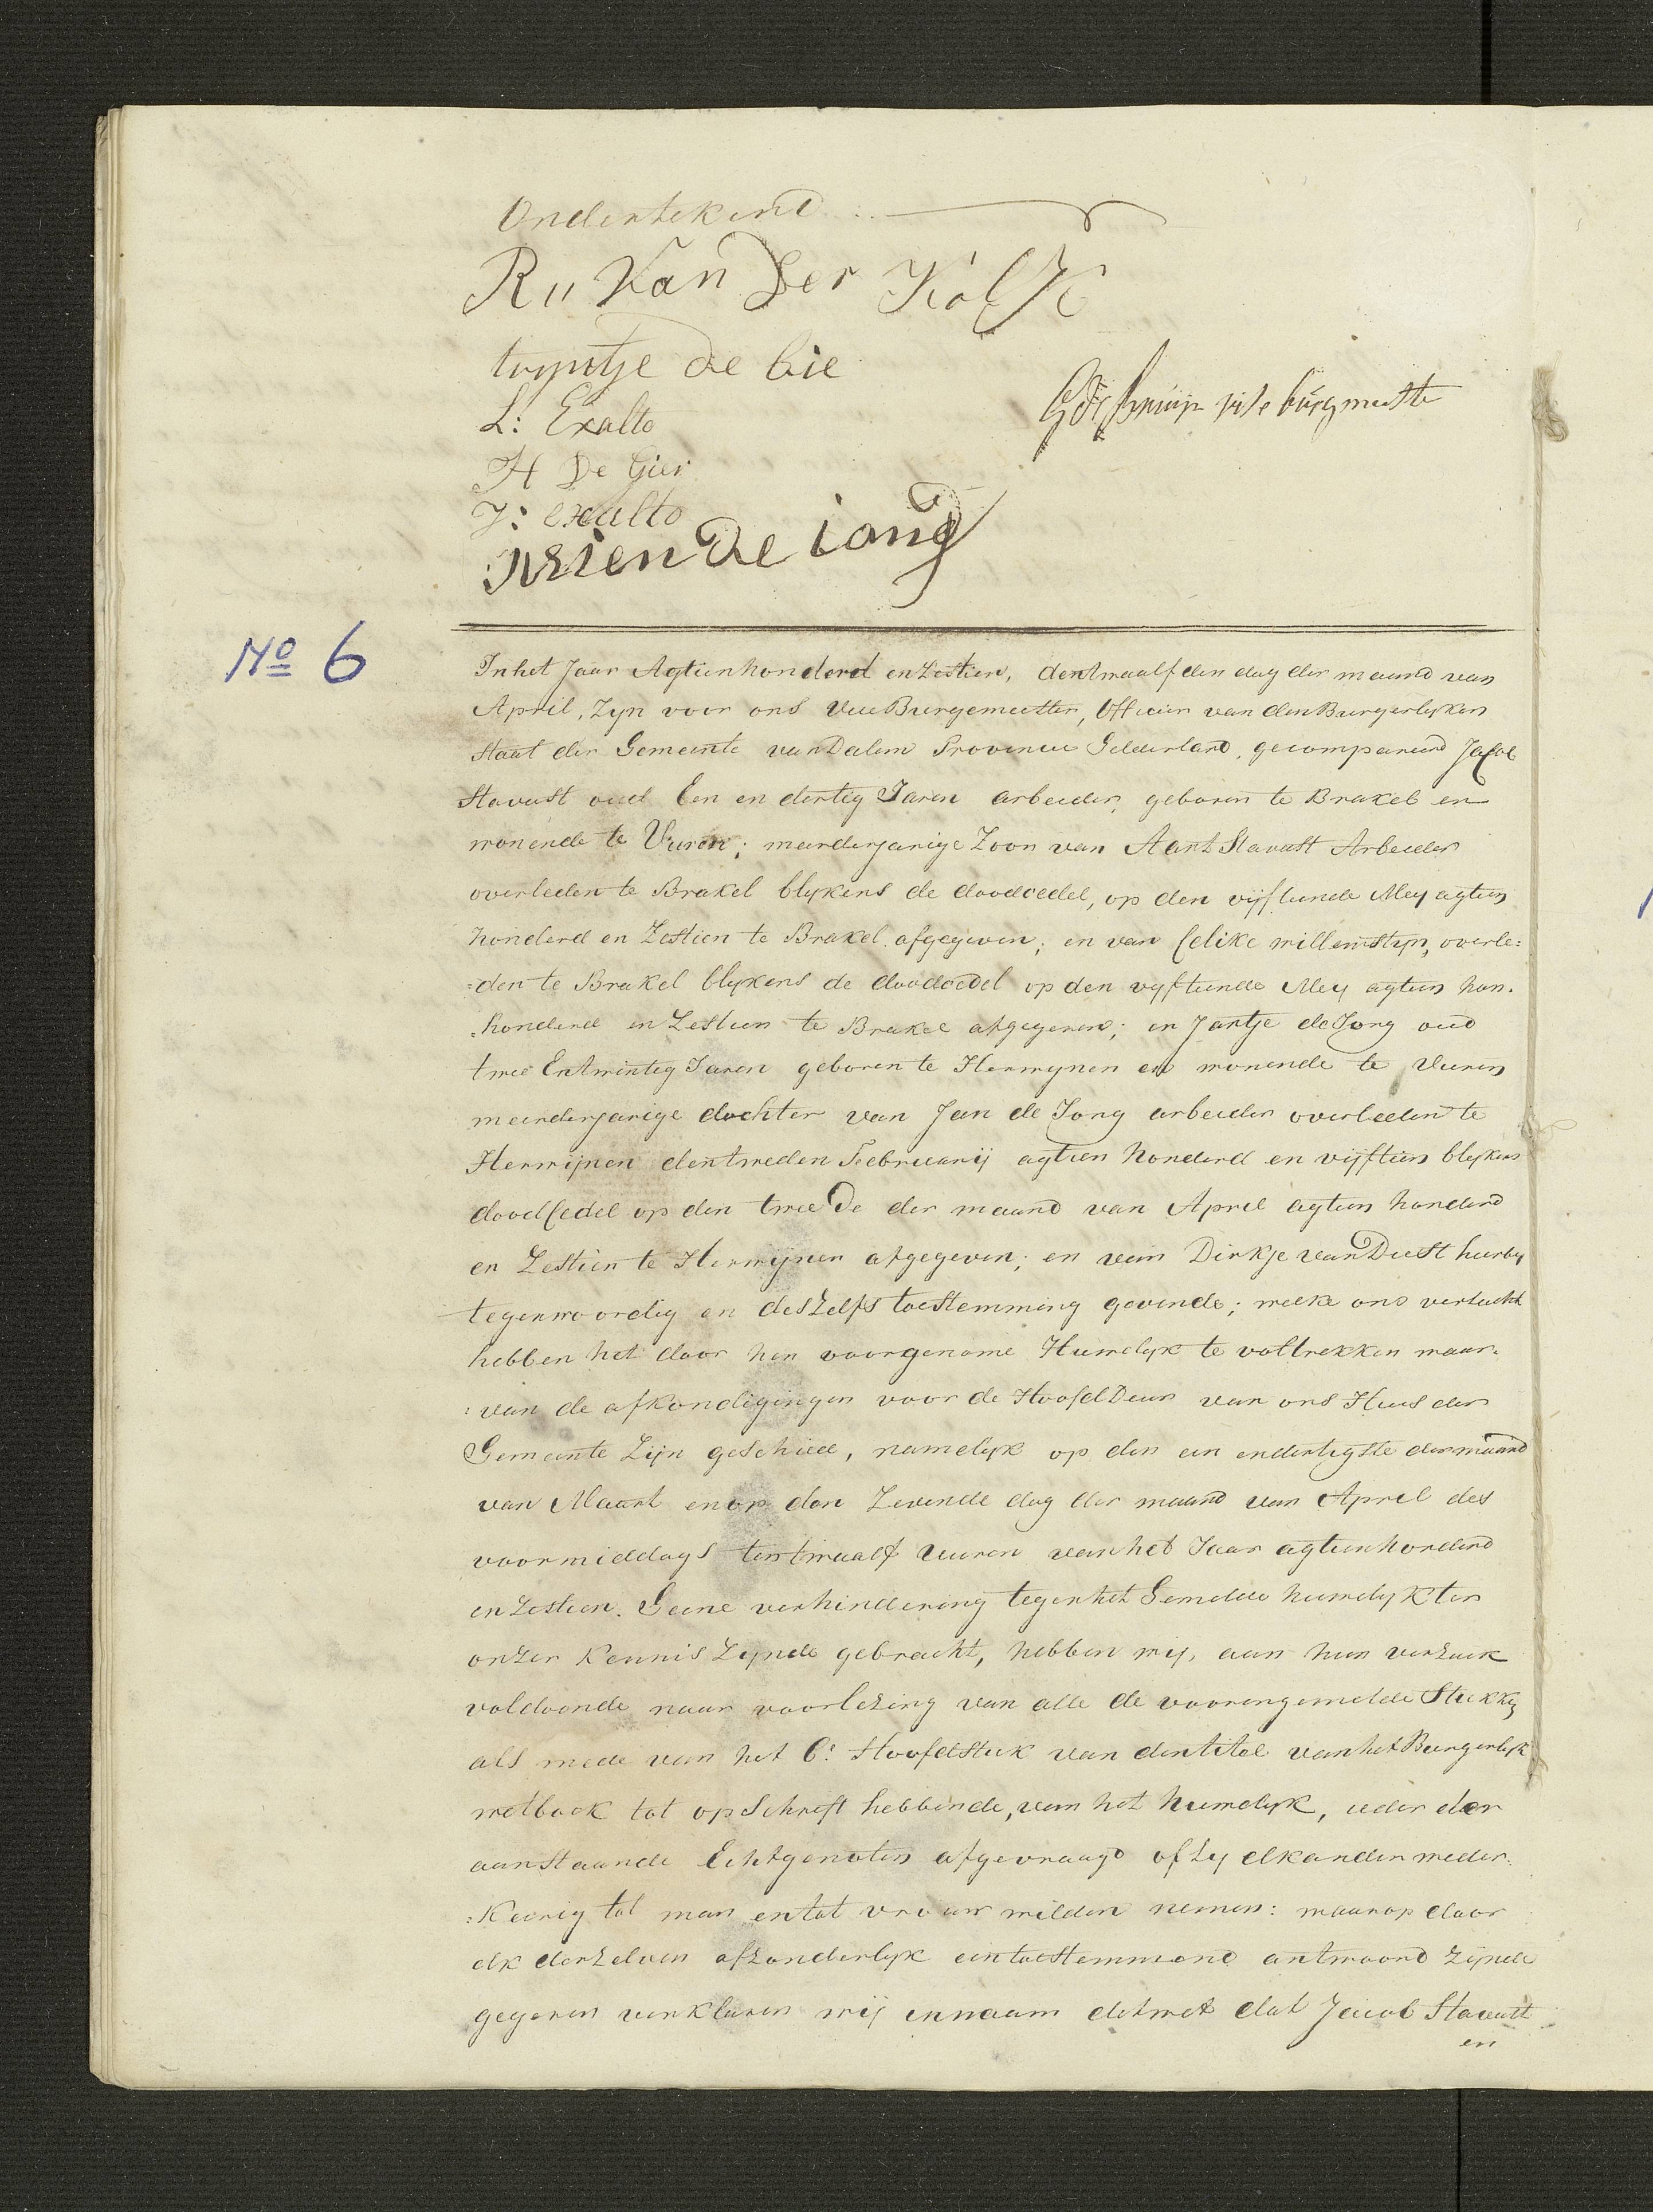 Ondertekend
R.. Van Der Kolk
tryntje de bie
L: Exalto
burgmeeste
H De Gier
J: exalto
Arien de iong
No 6
In het Jaar Agtienhonderd en Zestien, den twaalfden dag der maand van
April, Zyn voor ons Vice Burgemeester, Officier van den Burgerlyken
Staat der Gemeente van Dalem Provincie Gelderland, gecompareerd Jacob
Stavast oud Een en dertig Jaren arbeider, geboren te Brakel en
wonende te Vuren; meerderjarige Zoon van Aart Stavast Arbeider
overleden te Brakel blykens de doodcedel, op den vijftiende Mey agtien
honderd en Zestien te Brakel afgegeven; en van Celike willemstyn, overle:
:den te Brakel blykens de doodcedel op den vyftiende Mey agtien hon.
:honderd en Zestien te Brakel afgegeven; en Jantje de Jong oud
twee En twintig Jaren geboren te Herwynen en wonende te Vuren
meerderjarige dochter van Jan de Jong arbeider overleeden te
Herwijnen den tweeden Feebruarij agtien honderd en vijftien blykens
doodCedel op den tweeDe der maand van April agtien honderd
en Zestien te Herwijnen afgegeven; en van Dirkje van Diest hierby
tegenwoordig en deszelfs toestemming gevende; welke ons versucht
hebben het door hen voorgenome Huwelyk te voltrekken waar.
:van de afkondigingen voor de Hoofd Deur van ons Huis der
Gemeente Zijn geschied, namelyk op den een en dertigste der maand
van Maart en op den Zevende dag der maand van April des
voormiddags ten twaalf uuren van het Jaar agtienhonderd
en Zestien. Geene verhindering tegen het Gemelde huwelyk ter
onzer Kennis Zynde gebracht, hebben wij, aan hun verzuek
voldoende naar voorlezing van alle de voorengemelde Stukken
als mede van het 6: Hoofdstuk van den titel van het Burgerlyk
wetboek tot opschrift hebbende, van het huwelyk, ieder der
aanstaande Echtgenoten afgevraagd of Zy elkander weder:
:keerig tot man en tot vrouw wilden nemen: waarop door
elk derzelven afzonderlyk een toestemmend antwoord zijnde
gegeven verklaren wij in naam der wet dat Jacob Stavast
en